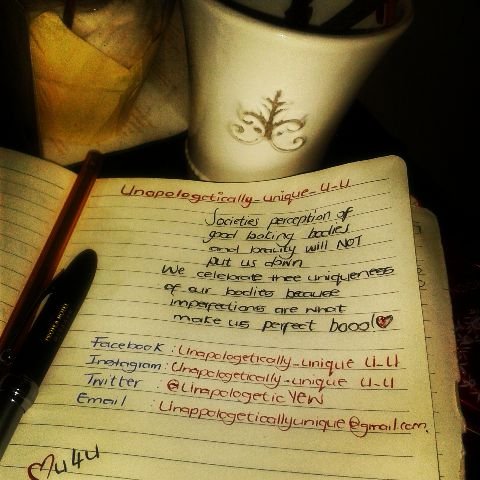 Unapologetically-unique-U-U
Societies perception of
good looking bodies
and beauty will NOT
put us down
We celebrate thee uniqueness
of our bodies because
imperfections are what
make us perfect booo!
Facebook : Unapologetically-unique U-U
Instagram : Unapologetically-unique U-U
Twitter : @UnapologeticYEW
Email : Unappologeticallyunique@gmail.com.
u4u